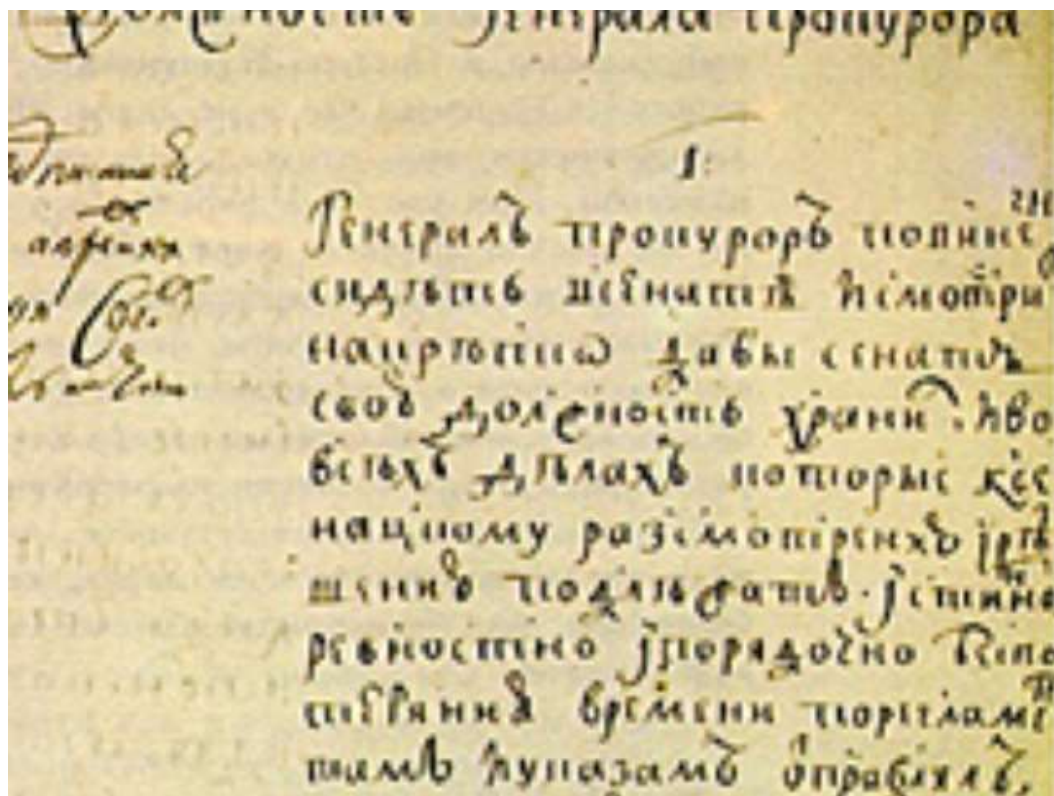 Должность генерала прокурора
1.
апреля
Генералъ прокуроръ повине
сидѣть всенате ісмотри
накрѣпко дабы сенатъ
свою должность хранил. іво
всѣхъ дѣлахъ которые ксе
нацкому разсмотренію ірѣ
шению подлежатъ. істинно
ревностно іпорядочно безпо
теряния времени порегламен
тамъ іуказамъ отправлялъ,